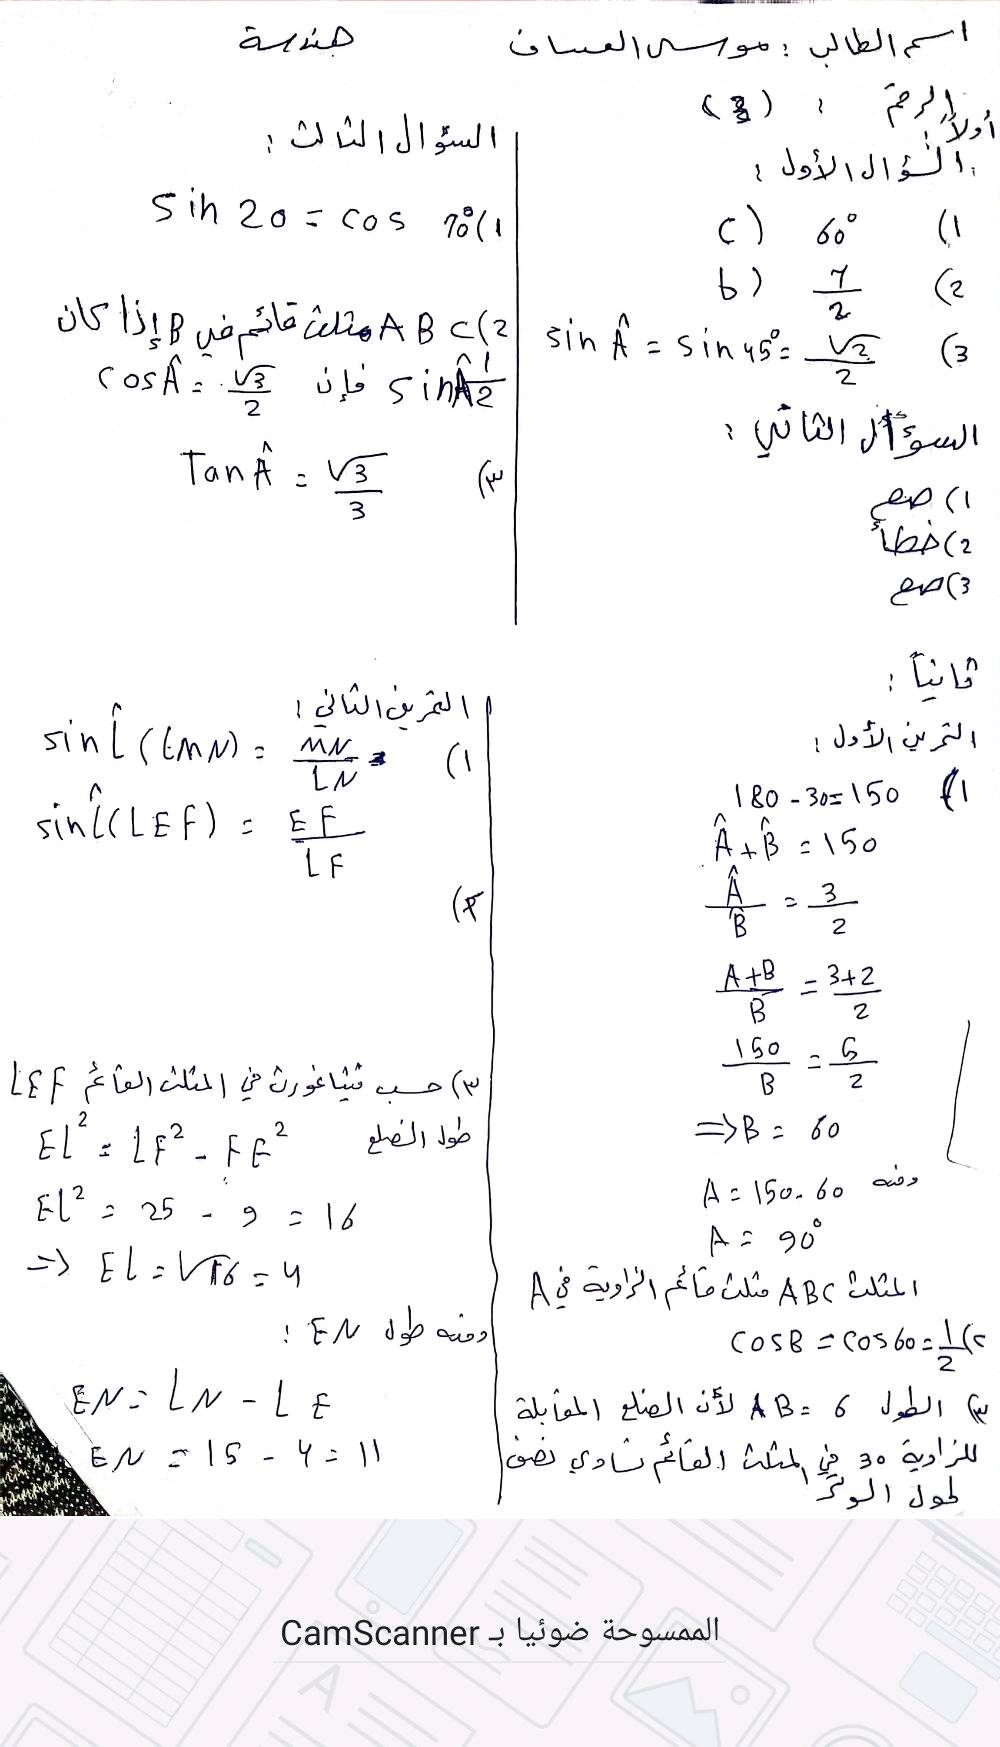 اسم الطالب : موسى العساف
هندسة
الرقم : (3)
أولاً :
السؤال الأول :
1) c) 60°
2) b) 7/2
3) sin Â = sin 45° = √2/2
السؤال الثاني :
1) صح
2) خطأ
3) صح
السؤال الثالث :
1) sin 20 = cos 70°
2) ABC مثلث قائم في B إذا كان
sin Â 1/2 فإن cos Â = √3/2
٣) Tan Â = √3/3
ثانياً :
التمرين الأول :
1) 180 - 30 = 150
Â + B̂ = 150
Â/B̂ = 3/2
A+B/B = 3+2/2
150/B = 5/2
=> B = 60
ومنه A = 150 - 60
A = 90°
المثلث ABC مثلث قائم الزاوية في A
٢) cos B = cos 60 = 1/2
٣) الطول AB = 6 لأن الضلع المقابلة
للزاوية 30 في المثلث القائم تساوي نصف
طول الوتر
التمرين الثاني :
1) sin L̂ (LMN) = MN/LN
sin L̂ (LEF) = EF/LF
٢)
٣) حسب فيثاغورث في المثلث القائم LEF
طول الضلع EL² = LF² - FE²
EL² = 25 - 9 = 16
=> EL = √16 = 4
ومنه طول EN :
EN = LN - LE
EN = 15 - 4 = 11
الممسوحة ضوئيا بـ CamScanner